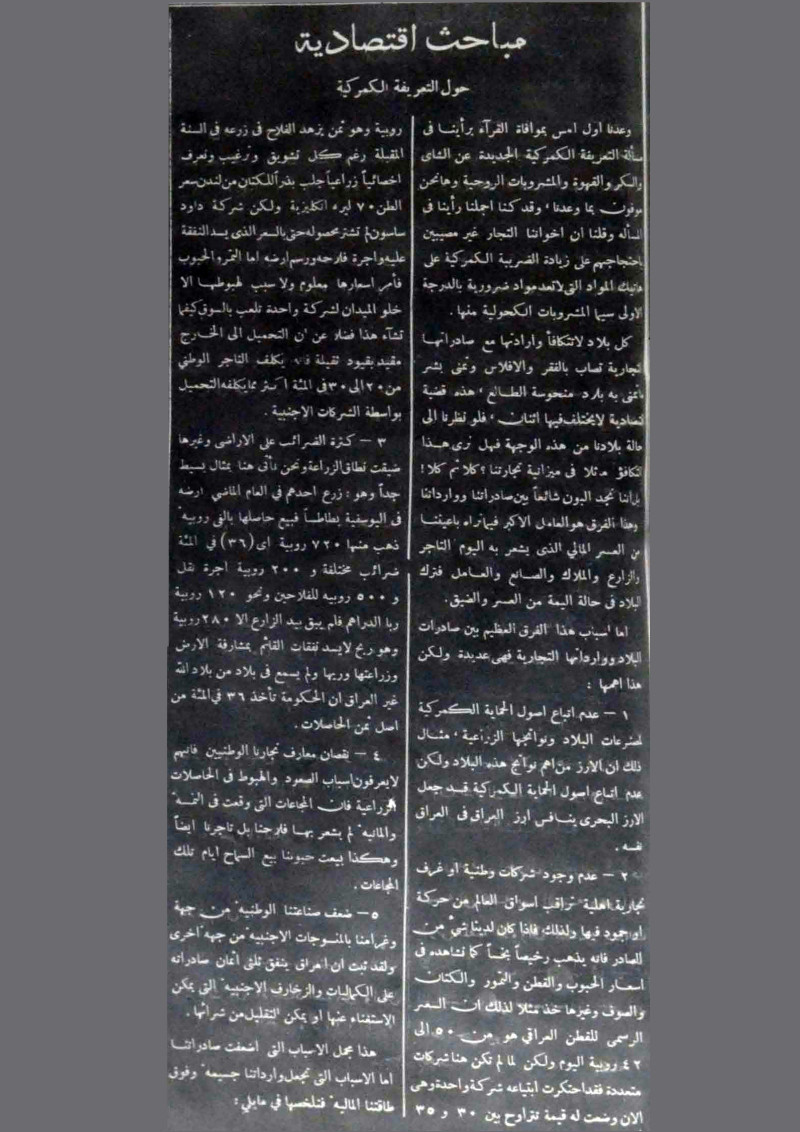 مباحث اقتصادية
حول التعريفة الكمركية
وعدنا اول امس بموافاة القرآء برأينا فى
مسألة التعريفة الكمركية الجديدة عن الشاى
والسكر والقهوة والمشروبات الروحية وهانحن
موفون بما وعدنا، وقد كنا اجملنا رأينا فى
المسأله وقلنا ان اخواننا التجار غير مصيبين
باحتجاجهم على زيادة الضريبة الكمركية على
هاتيك المواد التى لاتعد مواد ضرورية بالدرجة
الاولى سيما المشروبات الكحولية منها .
كل بلاد لاتتكافأ وارادتها مع صادراتها
التجارية تصاب بالفقر والافلاس وتمنى بشر
ماتمنى به بلاد منحوسة الطالع، هذه قضية
اقتصادية لايختلف فيها اثنان، فلو نظرنا الى
حالة بلادنا من هذه الوجهة فهل نرى هذا
التكافؤ ماثلا فى ميزانية تجارتنا؟ كلا ثم كلا!
بل أننا نجد البون شائعاً بين صادراتنا ووارداتنا
وهذا الفرق هو العامل الاكبر فيما نراه باعيننا
من العسر المالي الذى يشعر به اليوم التاجر
والزارع والملاك والصانع والعامل فترك
البلاد فى حالة اليمة من العسر والضيق .
اما اسباب هذا الفرق العظيم بين صادرات
البلاد ووارداتها التجارية فهى عديدة ولكن
هذا اهمها :
١ — عدم اتباع اصول الحماية الكمركية
لمصنوعات البلاد ونوائجها الزراعية، مثال
ذلك ان الارز من اهم نوائج هذه البلاد ولكن
عدم اتباع اصول الحماية الكمركية قد جعل
الارز البحرى ينافس ارز العراق فى العراق
نفسه .
٢ — عدم وجود شركات وطنية او غرف
تجارية اهلية تراقب اسواق العالم من حركة
او جمود فيها ولذلك فاذا كان لدينا شيء من
الصادر فانه يذهب رخيصاً بخساً كما نشاهده فى
اسعار الحبوب والقطن والتمور والكتان
والصوف وغيرها خذ مثلا لذلك ان السعر
الرسمى للقطن العراقي هو من ٥٠ الى
٤٢ روبية اليوم ولكن لما لم تكن هنا شركات
متعددة فقد احتكرت ابتياعه شركة واحدة وهى
الان وضعت له قيمة تتراوح بين ٣٠ و ٣٥
روبية وهو ثمن يزهد الفلاح فى زرعه فى السنة
المقبلة رغم كل تشويق وترغيب ونعرف
اخصائياً زراعياً جلب بذر الكتان من لندن بسعر
الطن ٧٠ ليره انكليزية ولكن شركة داود
ساسون لم تشتر محصوله حتى بالسعر الذى يسد النفقة
عليه واجرة فلاحه ورسم ارضه اما التمر والحبوب
فأمر اسعارها معلوم ولا سبب لهبوطها الا
خلو الميدان لشركة واحدة تلعب بالسوق كيفما
تشآء هذا فضلا عن ان التحميل الى الخارج
مقيد بقيود ثقيلة فانه يكلف التاجر الوطني
من ٢٠ الى ٣٠ فى المئة اكثر مما يكلفه التحميل
بواسطة الشركات الاجنبية .
٣ — كثرة الضرائب على الاراضى وغيرها
ضيقت نطاق الزراعة ونحن نأتى هنا بمثال بسيط
جداً وهو : زرع احدهم في العام الماضي ارضه
فى اليوسفية بطاطساً فبيع حاصلها بالفى روبيه
ذهب منها ٧٢٠ روبية اى (٣٦) في المئة
ضرائب مختلفة و ٢٠٠ روبية اجرة نقل
و ٥٠٠ روبيه للفلاحين ونحو ١٢٠ روبية
ربا الدراهم فلم يبق بيد الزارع الا ٢٨٠ روبية
وهو ربح لايسد نفقات القائم بمشارفة الارض
وزراعتها وريها ولم يسمع فى بلاد من بلاد الله
غير العراق ان الحكومة تأخذ ٣٦ فى المئة من
اصل ثمن الحاصلات .
٤ — نقصان معارف تجارنا الوطنيين فانهم
لايعرفون اسباب الصعود والهبوط فى الحاصلات
الزراعية فان المجاعات التى وقعت فى النمسه
والمانيه لم يشعر بها فلاحنا بل تاجرنا ايضاً
وهكذا بيعت حبوبنا بيع السماح ايام تلك
المجاعات .
٥ — ضعف صناعتنا الوطنيه من جهة
وغرامنا بالمنسوجات الاجنبيه من جهة اخرى
ولقد ثبت ان العراق ينفق ثلثى اثمان صادراته
على الكماليات والزخارف الاجنبيه التى يمكن
الاستغناء عنها او يمكن التقليل من شرائها .
هذا مجمل الاسباب التى اضعفت صادراتنا
اما الاسباب التى تجعل وارداتنا جسيمه وفوق
طاقتنا الماليه فنلخصها في مايلي :